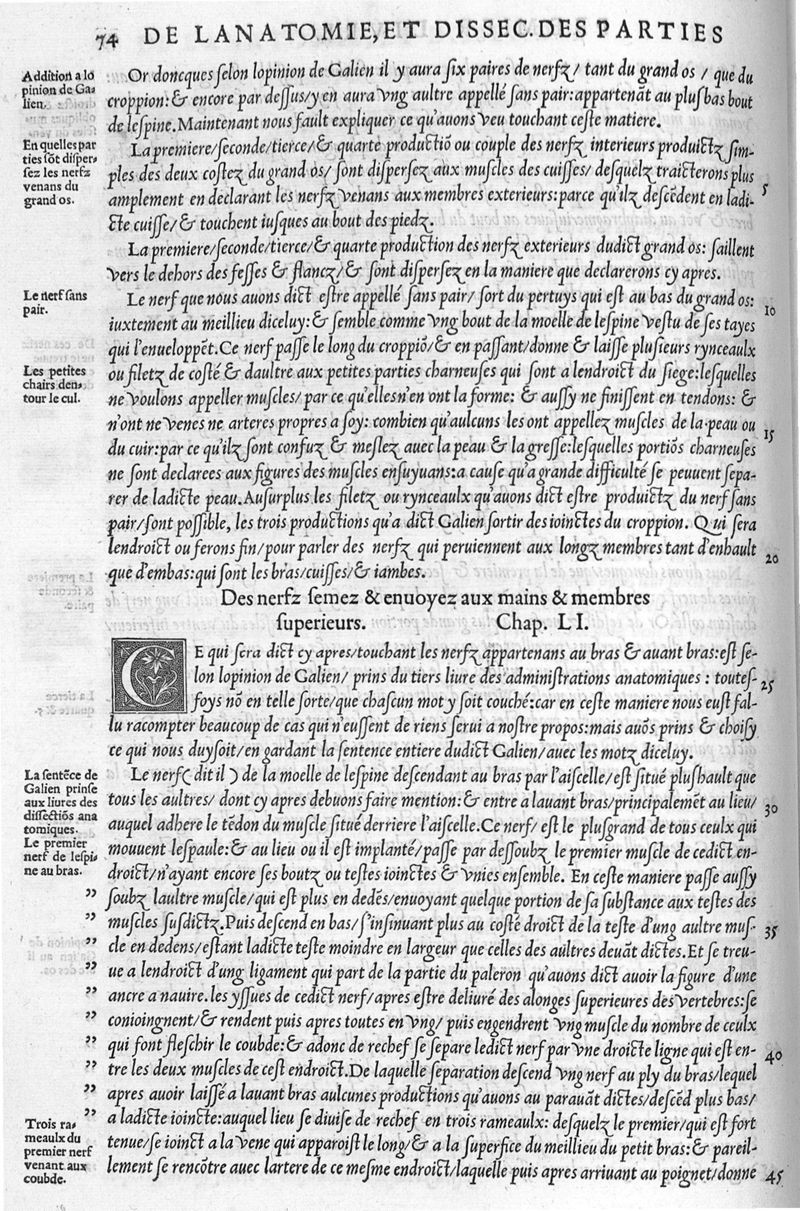 74 DE LANATOMIE, ET DISSEC. DES PARTIES
Addition a lo
pinion de Ga⸗
lien.
Or doncques selon lopinion de Galien il y aura six paires de nerfz/ tant du grand os / que du
croppion: & encore par dessus/ y en aura vng aultre appellé sans pair: appartenãt au plus bas bout
de lespine. Maintenant nous fault expliquer ce qu'auons veu touchant ceste matiere.
En quelles par
ties sõt disper⸗
sez les nerfz
venans du
grand os.
La premiere/ seconde/ tierce/ & quarte productiõ ou couple des nerfz interieurs produictz sim-
ples des deux costez du grand os/ sont dispersez aux muscles des cuisses/ desquelz traicterons plus
amplement en declarant les nerfz venans aux membres exterieurs: parce qu'ilz descẽdent en ladi- 5
cte cuisse/ & touchent iusques au bout des piedz.
La premiere/ seconde/ tierce/ & quarte production des nerfz exterieurs dudict grand os: saillent
vers le dehors des fesses & flancz/ & sont dispersez en la maniere que declarerons cy apres.
Le nerf sans
pair.
Le nerf que nous auons dict estre appellé sans pair/ sort du pertuys qui est au bas du grand os: 10
iuxtement au meillieu diceluy: & semble comme vng bout de la moelle de lespine vestu de ses tayes
qui l'enueloppẽt. Ce nerf passe le long du croppiõ/ & en passant/ donne & laisse plusieurs rynceaulx
Les petites
chairs den⸗
tour le cul.
ou filetz de costé & daultre aux petites parties charneuses qui sont a lendroict du siege: lesquelles
ne voulons appeller muscles/ par ce qu'elles n'en ont la forme: & aussy ne finissent en tendons: &
n'ont ne venes ne arteres propres a soy: combien qu'aulcuns les ont appellez muscles de la peau ou 15
du cuir: par ce qu'ilz sont confuz & meslez auec la peau & la gresse: lesquelles portiõs charneuses
ne sont declarees aux figures des muscles ensuyuans: a cause qu'a grande difficulté se peuuent sepa-
rer de ladicte peau. Au surplus les filetz ou rynceaulx qu'auons dict estre produictz du nerf sans
pair/ sont possible, les trois productions qu'a dict Galien sortir des ioinctes du croppion. Qui sera
lendroict ou ferons fin/ pour parler des nerfz qui peruiennent aux longz membres tant d'enhault 20
que d'embas: qui sont les bras/ cuisses/ & iambes.
Des nerfz semez & enuoyez aux mains & membres
superieurs. Chap. LI.
CE qui sera dict cy apres/ touchant les nerfz appartenans au bras & auant bras: est se-
lon lopinion de Galien/ prins du tiers liure des administrations anatomiques : toutes- 25
foys nõ en telle sorte/ que chascun mot y soit couché: car en ceste maniere nous eust fal-
lu racompter beaucoup de cas qui n'eussent de riens serui a nostre propos: mais auõs prins & choisy
ce qui nous duysoit/ en gardant la sentence entiere dudict Galien/ auec les motz diceluy.
La sentẽce de
Galien prinse
aux liures des
dissectiõs ana
tomiques.
Le premier
nerf de lespi⸗
ne au bras.
Le nerf (dit il) de la moelle de lespine descendant au bras par l'aiscelle/ est situé plushault que
tous les aultres/ dont cy apres debuons faire mention: & entre a lauant bras/ principalemẽt au lieu/ 30
auquel adhere le tẽdon du muscle situé derriere l'aiscelle. Ce nerf/ est le plusgrand de tous ceulx qui
mouuent lespaule: & au lieu ou il est implanté/ passe par dessoubz le premier muscle de cedict en-
droict/ n'ayant encore ses boutz ou testes ioinctes & vnies ensemble. En ceste maniere passe aussy
” soubz laultre muscle/ qui est plus en dedẽs/ enuoyant quelque portion de sa substance aux testes des
” muscles susdictz. Puis descend en bas/ s'insinuant plus au costé droict de la teste d'ung aultre mus- 35
” cle en dedens/ estant ladicte teste moindre en largeur que celles des aultres deuãt dictes. Et se treu-
” ue a lendroict d'ung ligament qui part de la partie du paleron qu'auons dict auoir la figure d'une
” ancre a nauire. les yssues de cedict nerf/ apres estre deliuré des alonges superieures des vertebres: se
” conioingnent/ & rendent puis apres toutes en vng/ puis engendrent vng muscle du nombre de ceulx
” qui font fleschir le coubde: & adonc de rechef se separe ledict nerf par vne droicte ligne qui est en- 40
” tre les deux muscles de cest endroict. De laquelle separation descend vng nerf au ply du bras/ lequel
” apres auoir laissé a lauant bras aulcunes productions qu'auons au parauãt dictes/ descẽd plus bas/
” a ladicte ioincte: auquel lieu se diuise de rechef en trois rameaulx: desquelz le premier/ qui est fort
Trois ra⸗
meaulx du
premier nerf
venant aux
coubde.
tenue/ se ioinct a la vene qui apparoist le long/ & a la superfice du meillieu du petit bras: & pareil-
lement se rencõtre auec lartere de ce mesme endroict/ laquelle puis apres arriuant au poignet/ donne 45